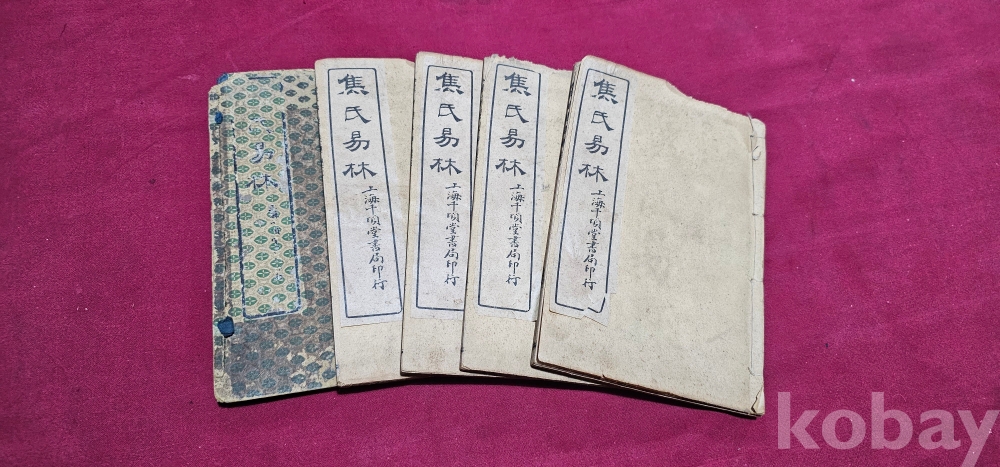 易林
焦氏易林
上海千頃堂書局印行
焦氏易林
上海千頃堂書局印行
焦氏易林
上海千頃堂書局印行
焦氏易林
上海千頃堂書局印行
kobay